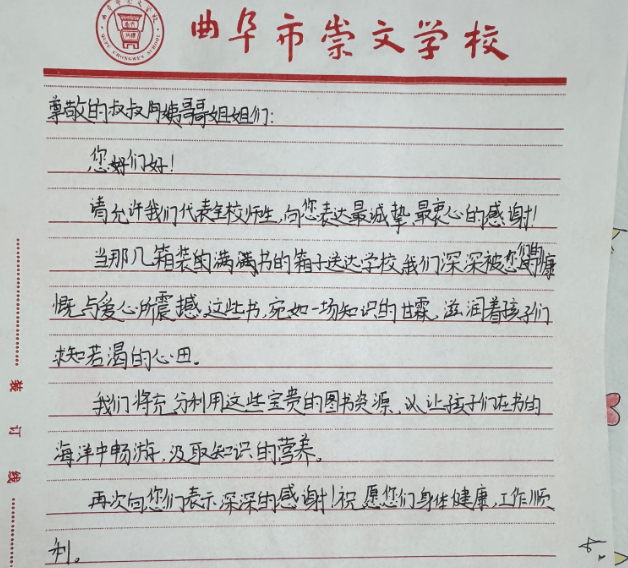 曲阜市崇文学校
尊敬的叔叔阿姨哥哥姐姐们:
您好们好!
请允许我们代表全校师生,向您表达最诚挚、最衷心的感谢!
当那几箱装的满满书的箱子送达学校,我们深深被您们的慷
慨与爱心所震撼,这些书,宛如一场知识的甘霖,滋润着孩子们
求知若渴的心田。
我们将充分利用这些宝贵的图书资源,以让孩子们在书的
海洋中畅游,汲取知识的营养。
再次向您们表示深深的感谢!祝愿您们身体健康,工作顺
利。
装
订
线